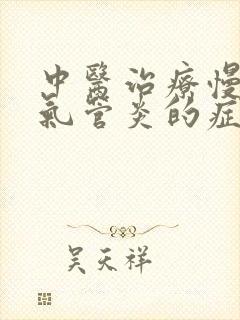 中醫治療慢
氣管炎的症
吳天祥